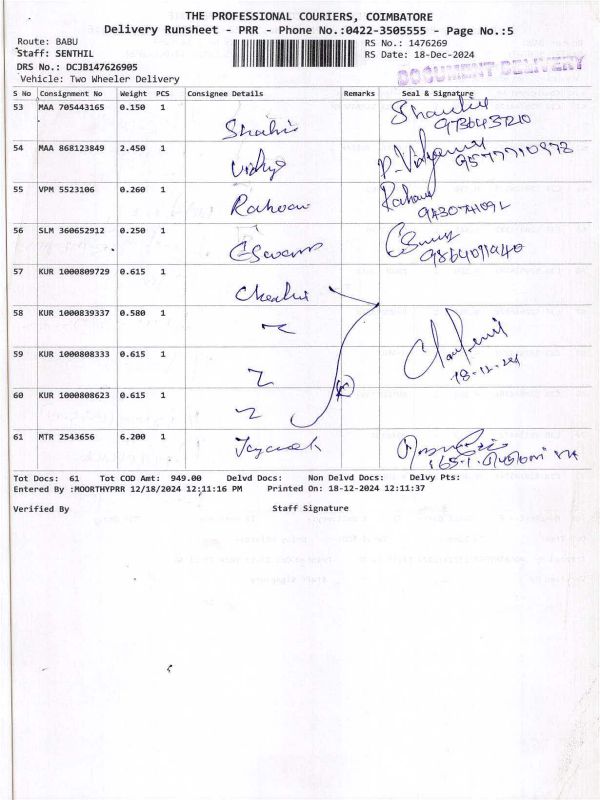 THE PROFESSIONAL COURIERS, COIMBATORE
Delivery Runsheet - PRR - Phone No.:0422-3505555 - Page No.:5
Route: BABU RS No.: 1476269
Staff: SENTHIL RS Date: 18-Dec-2024
DRS No.: DCJB147626905
DOCUMENT DELIVERY
Vehicle: Two Wheeler Delivery
S No Consignment No Weight PCS Consignee Details Remarks Seal & Signature
53 MAA 705443165 0.150 1
54 MAA 868123849 2.450 1 Vidhya
55 VPM 5523106 0.260 1
56 SLM 360652912 0.250 1
57 KUR 1000809729 0.615 1
58 KUR 1000839337 0.580 1
59 KUR 1000808333 0.615 1
18-12-24
60 KUR 1000808623 0.615 1
61 MTR 2543656 6.200 1
Tot Docs: 61 Tot COD Amt: 949.00 Delvd Docs: Non Delvd Docs: Delvy Pts:
Entered By :MOORTHYPRR 12/18/2024 12:11:16 PM Printed On: 18-12-2024 12:11:37
Verified By Staff Signature